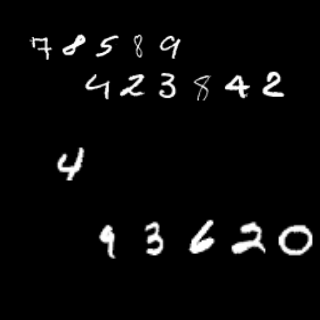 78589
423842
4
93620